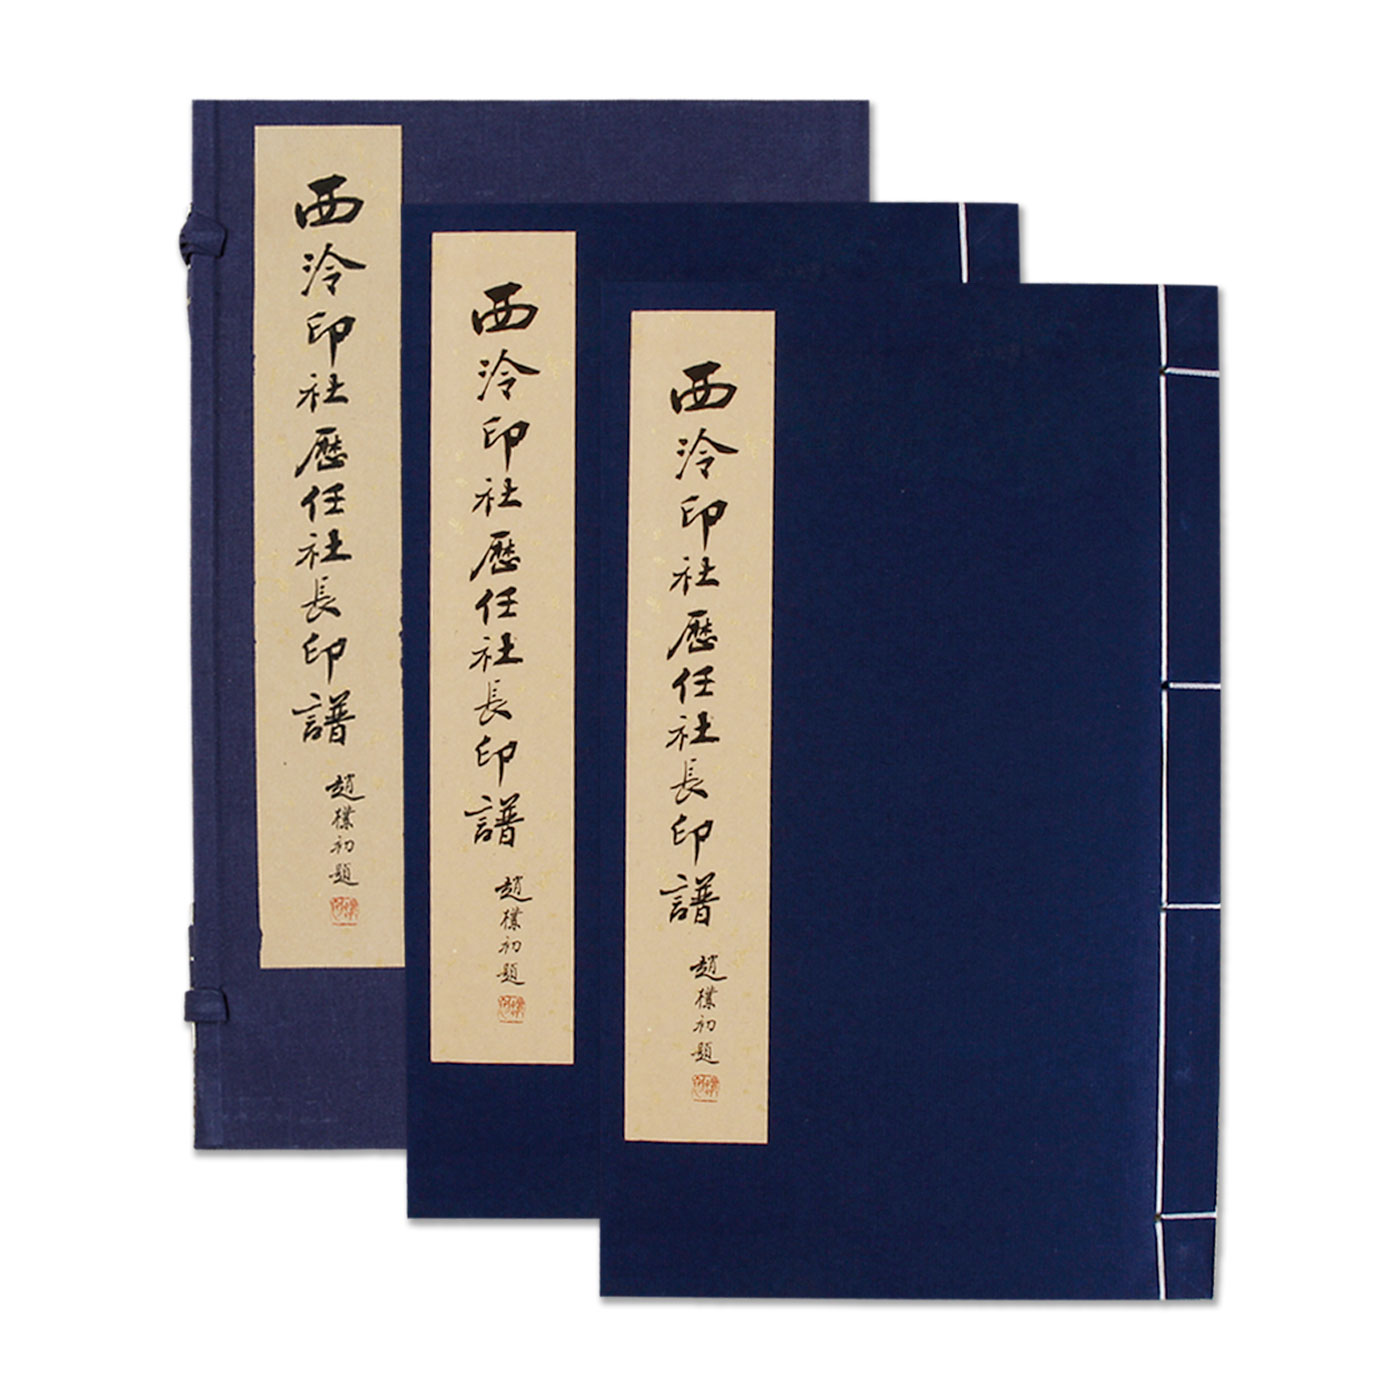 西泠印社歷任社長印譜
趙樸初題
西泠印社歷任社長印譜
趙樸初題
西泠印社歷任社長印譜
趙樸初題